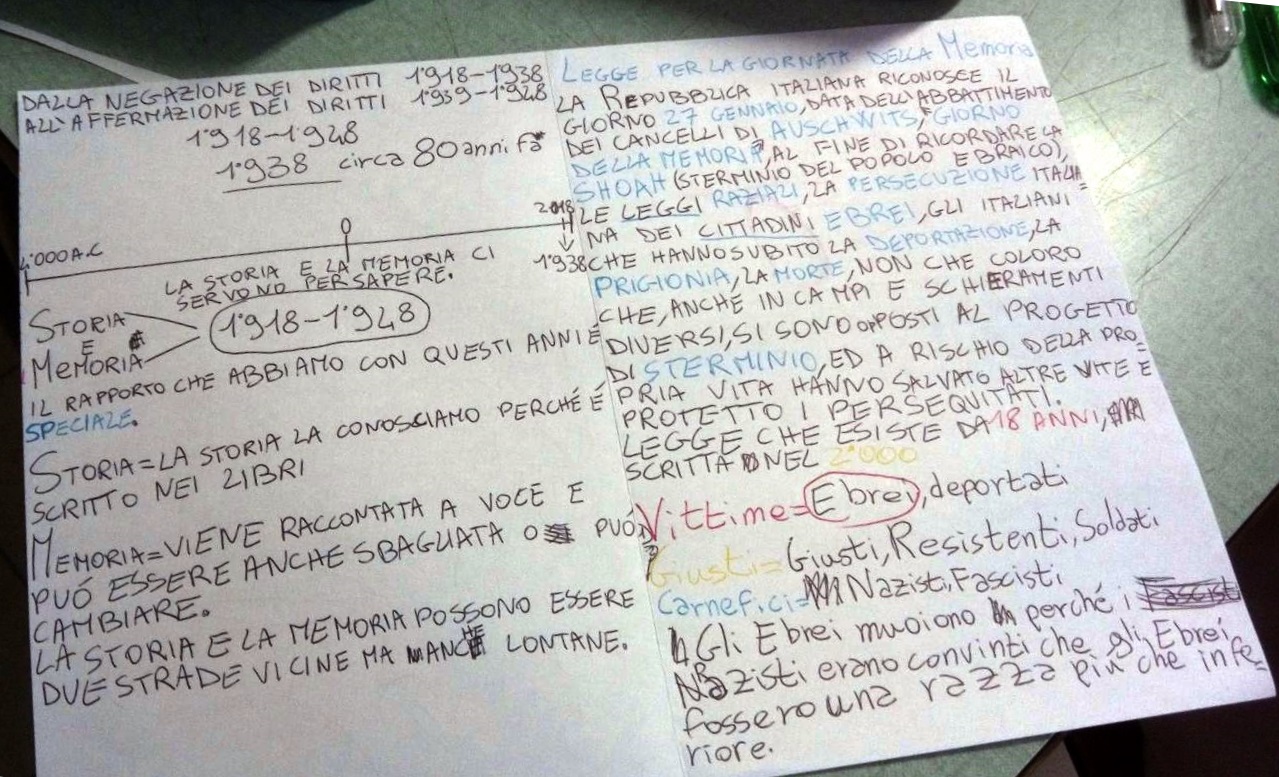 DALLA NEGAZIONE DEI DIRITTI 1'918-1'938
ALL'AFFERMAZIONE DEI DIRITTI 1'939-1'948
1'918-1'948
1'938 circa 80 anni fa
2'018
4'000 A.C 0
1'938
LA STORIA E LA MEMORIA CI
SERVONO PER SAPERE.
STORIA
E
MEMORIA
1'918-1'948
IL RAPPORTO CHE ABBIAMO CON QUESTI ANNI É
SPECIALE.
STORIA=LA STORIA LA CONOSCIAMO PERCHÉ É
SCRITTO NEI LIBRI
MEMORIA=VIENE RACCONTATA A VOCE E
PUÓ ESSERE ANCHE SBAGLIATA O PUÓ
CAMBIARE.
LA STORIA E LA MEMORIA POSSONO ESSERE
DUE STRADE VICINE MA ANCHE LONTANE.
LEGGE PER LA GIORNATA DELLA Memoria
LA REPUBBLICA ITALIANA RICONOSCE IL
GIORNO 27 GENNAIO, DATA DELL'ABBATTIMENTO
DEI CANCELLI DI AUSCHWITS, "GIORNO
DELLA MEMORIA", AL FINE DI RICORDARE LA
SHOAH (STERMINIO DEL POPOLO EBRAICO),
LE LEGGI RAZIALI, LA PERSECUZIONE ITALIA=
NA DEI CITTADINI EBREI, GLI ITALIANI
CHE HANNO SUBITO LA DEPORTAZIONE, LA
PRIGIONIA, LA MORTE, NON CHE COLORO
CHE, ANCHE IN CAMPI E SCHIERAMENTI
DIVERSI, SI SONO OPPOSTI AL PROGETTO
DI STERMINIO, ED A RISCHIO DELLA PRO=
PRIA VITA HANNO SALVATO ALTRE VITE E
PROTETTO I PERSEQUITATI.
LEGGE CHE ESISTE DA 18 ANNI,
SCRITTA NEL 2'000
Vittime=Ebrei, deportati
Giusti=Giusti, Resistenti, Soldati
Carnefici= Nazisti, Fascisti
Gli Ebrei muoiono perché i
Nazisti erano convinti che gli Ebrei
fossero una razza piú che infe=
riore.